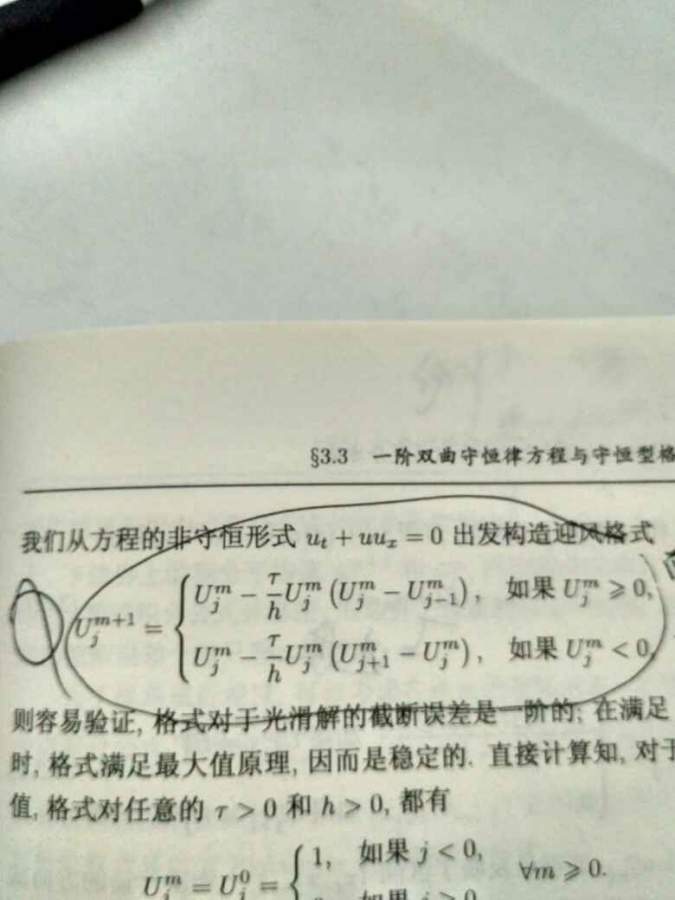 §3.3 一阶双曲守恒律方程与守恒型格
我们从方程的非守恒形式 u_t + uu_x = 0 出发构造迎风格式
U_j^{m+1} = { U_j^m − τ/h U_j^m (U_j^m − U_{j−1}^m), 如果 U_j^m ⩾ 0,
U_j^m − τ/h U_j^m (U_{j+1}^m − U_j^m), 如果 U_j^m < 0,
则容易验证, 格式对于光滑解的截断误差是一阶的; 在满足
时, 格式满足最大值原理, 因而是稳定的. 直接计算知, 对于
值, 格式对任意的 τ > 0 和 h > 0, 都有
U_j^m = U_j^0 = { 1, 如果 j < 0, ∀m ⩾ 0.
如果 j ⩾ 0